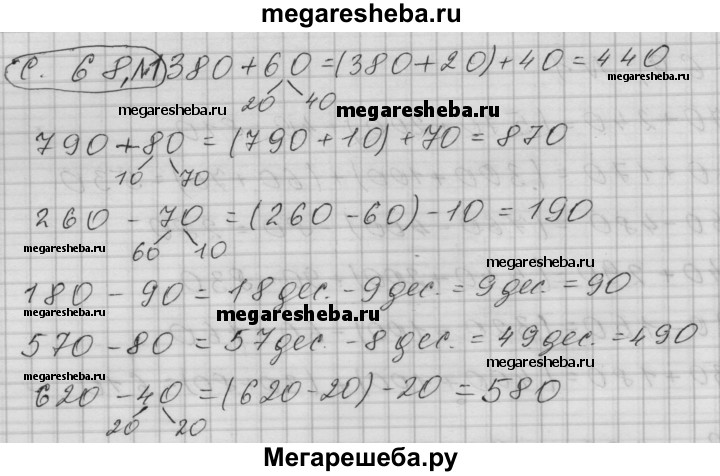 megaresheba.ru
с. 68, №1 380 + 60 = (380 + 20) + 40 = 440
megaresheba.ru
20 40
megaresheba.ru megaresheba.ru
790 + 80 = (790 + 10) + 70 = 870
10 70
260 - 70 = (260 - 60) - 10 = 190
megaresheba.ru 60 10
megaresheba.ru
180 - 90 = 18 дес. - 9 дес. = 9 дес = 90
megaresheba.ru
570 - 80 = 57 дес. - 8 дес. = 49 дес. = 490
megaresheba.ru
megaresheba.ru
620 - 40 = (620 - 20) - 20 = 580
20 20
Мегарешеба.ру